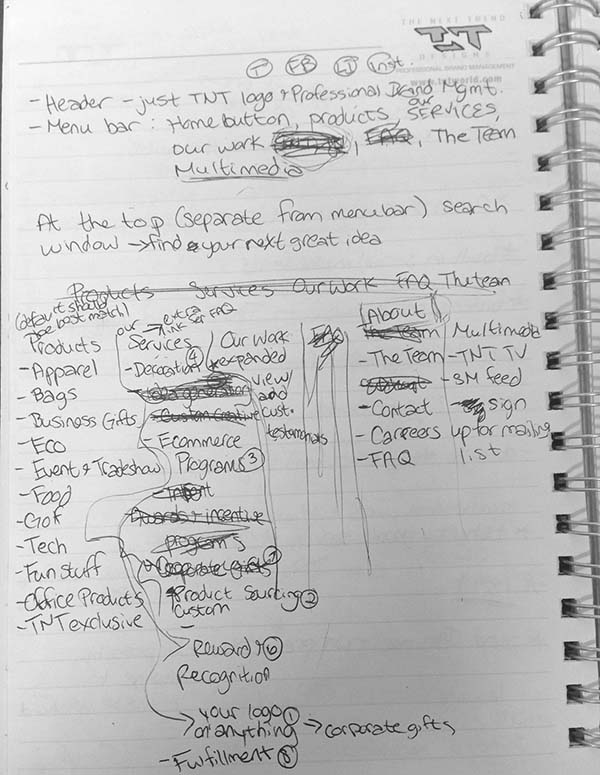 THE NEXT TREND
TNT
DESIGNS
PROFESSIONAL BRAND MANAGEMENT
T FB LI Inst.
- Header - just TNT logo & Professional Brand Mgmt.
- Menu bar : Home button, products, our SERVICES,
our work, FAQ, The Team
Multimedia
At the top (separate from menubar) search
window → find your next great idea
Products Services Our Work FAQ The team
(default should
be best match)
Products
- Apparel
- Bags
- Business Gifts
- Eco
- Event & Tradeshow
- Food
- Golf
- Tech
- Fun stuff
- Office Products
- TNT exclusive
our → extra
link for FAQ
Services
- Decoration 4
- Idea generation
- Custom Creative
- Ecommerce
Programs 3
Awards & incentive
programs
- Corporate gifts 7
Product Sourcing 2
Custom
- Reward & 6
Recognition
→ your logo 1
on anything → corporate gifts
- Fulfillment 5
Our Work
expanded
view
and
cust.
testimonials
FAQ
About
The Team
- The Team
- Contact
- Careers
- FAQ
Multimedia
- TNT TV
- SM feed
- sign
up for mailing
list